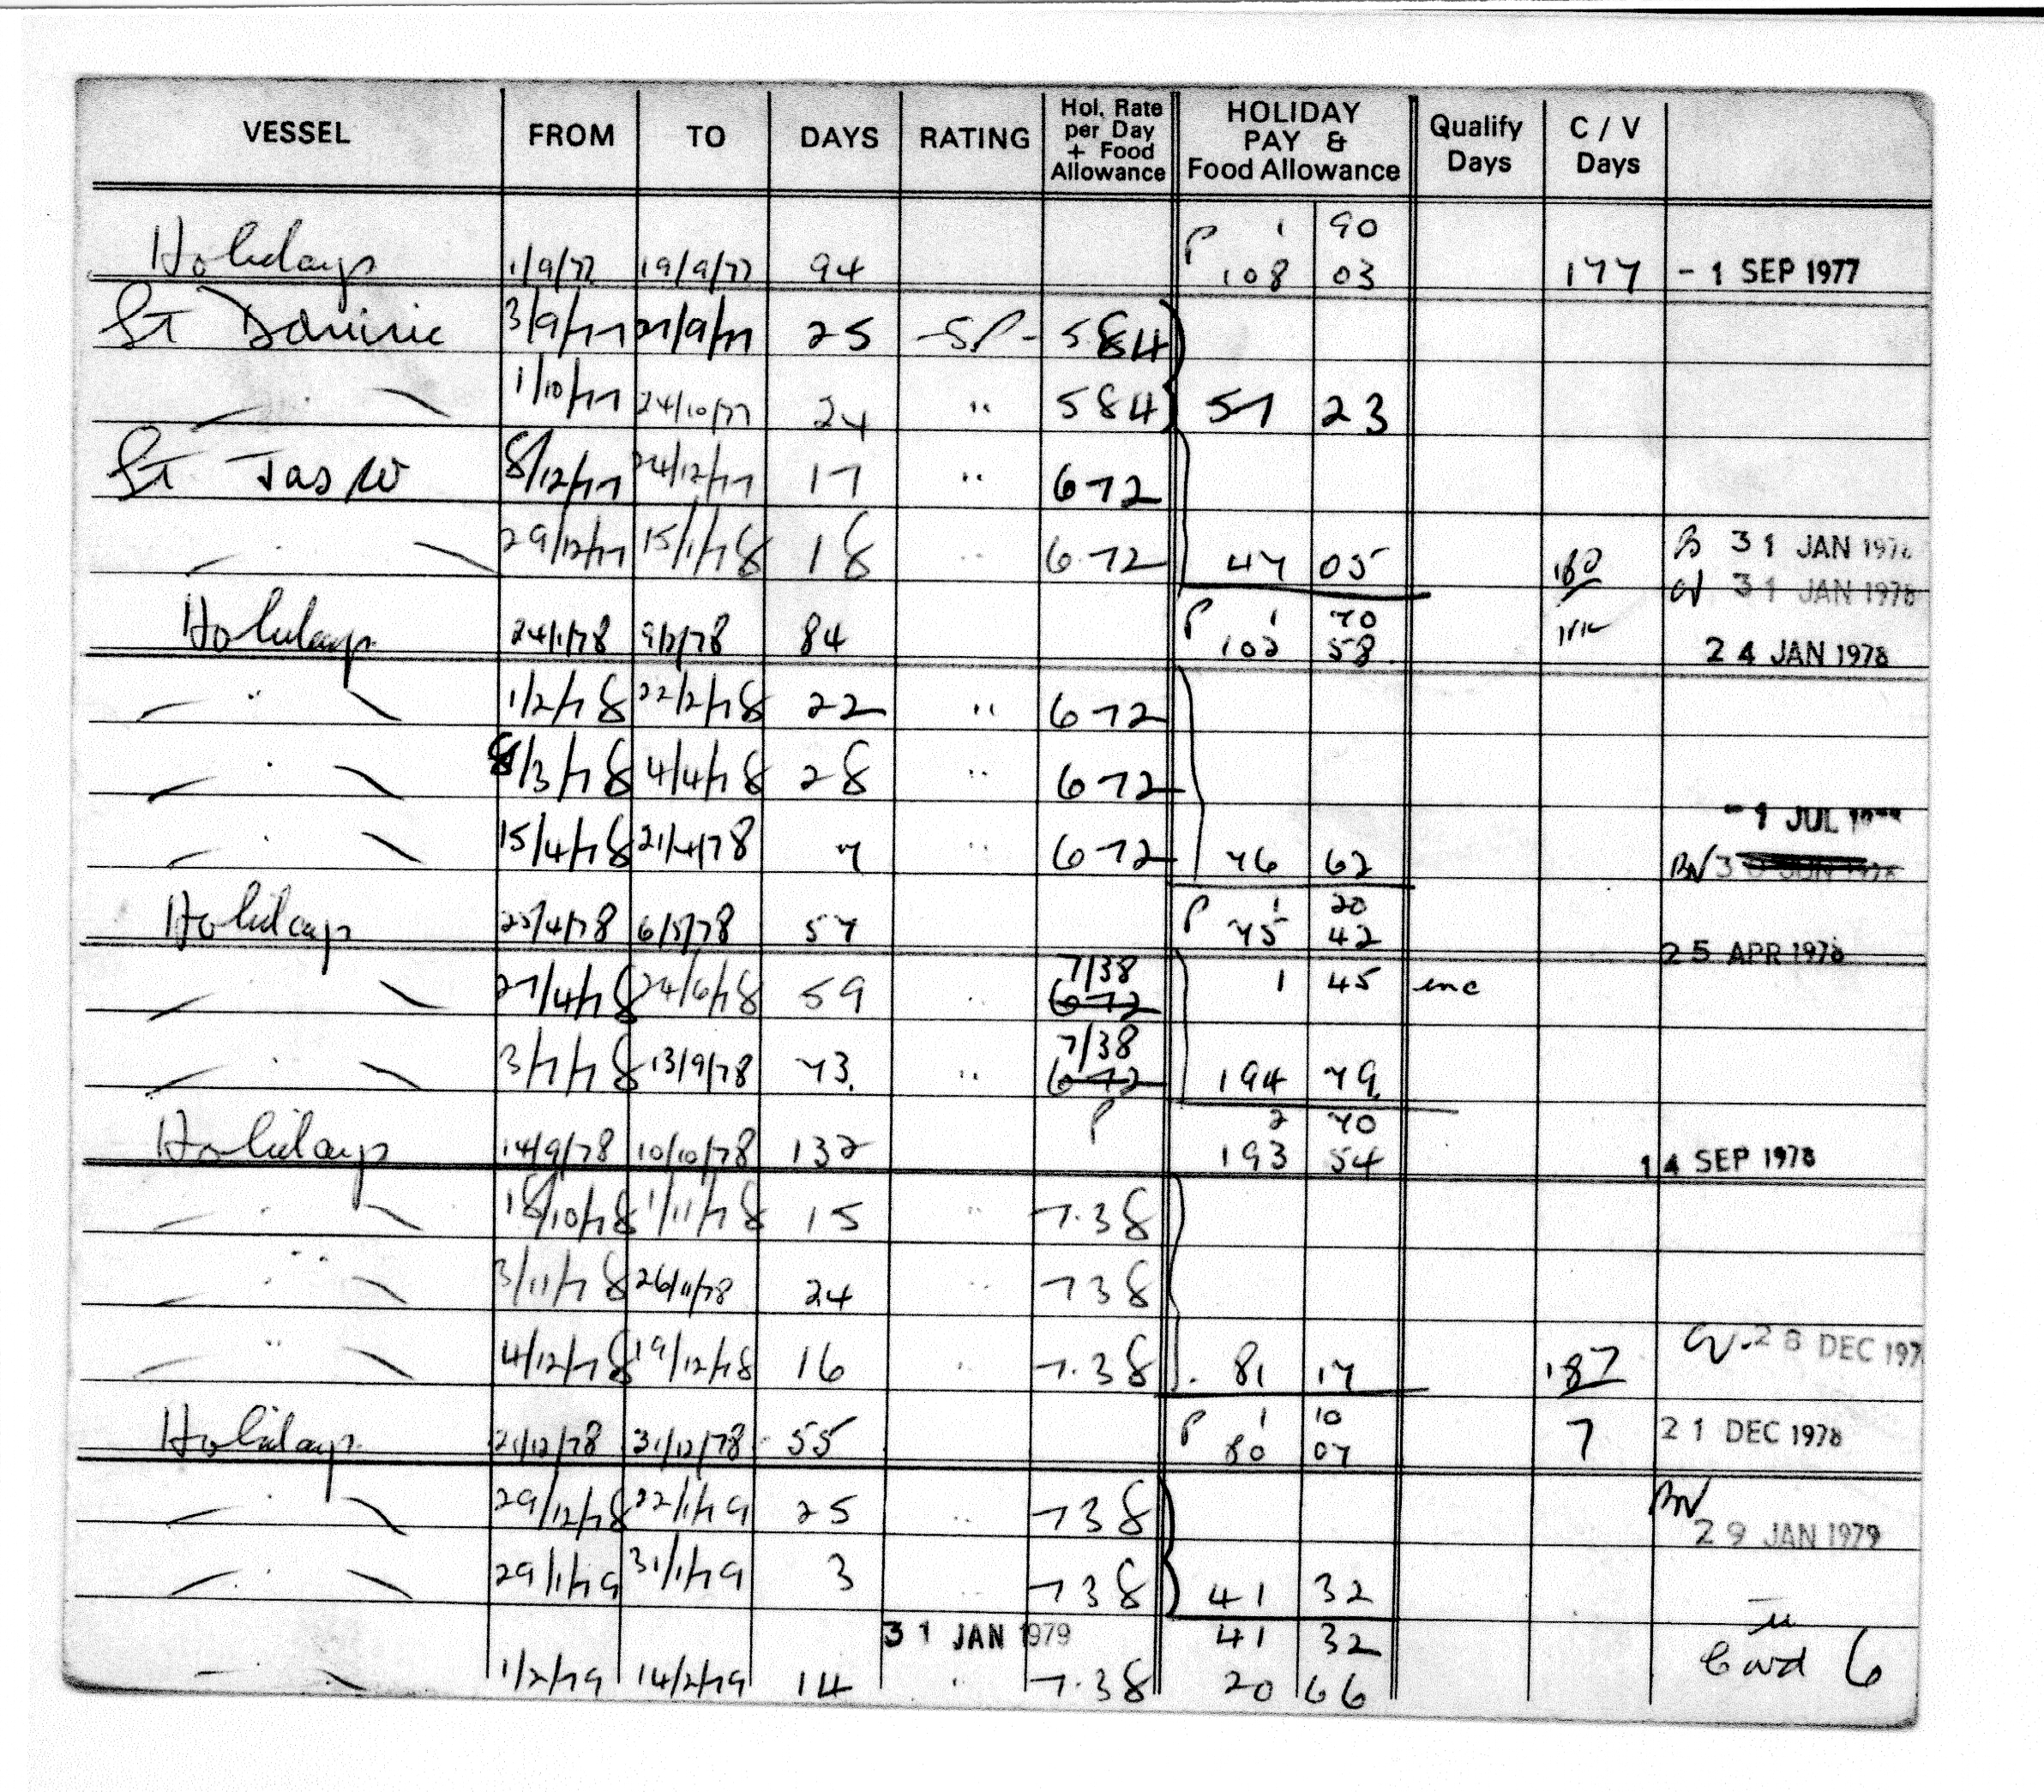 VESSEL FROM TO DAYS RATING Hol. Rate per Day + Food Allowance HOLIDAY PAY & Food Allowance Qualify Days C / V Days
P 1 90
Holidays 1/9/77 19/9/77 94 108 03 177 - 1 SEP 1977
St Dominic 3/9/77 27/9/77 25 -SP- 584
" 1/10/77 24/10/77 24 " 584 57 23
St Jasper 8/12/77 24/12/77 17 " 672
" 29/12/77 15/1/78 18 " 6.72 47 05 180 31 JAN 1978
31 JAN 1978
P 1 70
Holidays 24/1/78 9/2/78 84 102 58 24 JAN 1978
" 1/2/78 22/2/78 22 " 672
" 8/3/78 4/4/78 28 " 672
- 1 JUL
" 15/4/78 21/4/78 7 " 672 76 62 BN 30 JUN 1978
P 1 20
Holidays 25/4/78 6/5/78 57 75 42 25 APR 1978
" 27/4/78 24/6/78 59 " 7/38 672 1 45 inc
" 3/7/78 13/9/78 73. " 7/38 672 194 79.
P 2 70
Holidays 14/9/78 10/10/78 132 193 54 14 SEP 1978
" 18/10/78 1/11/78 15 " 7.38
" 3/11/78 26/11/78 24 " 738
" 4/12/78 19/12/78 16 " 7.38 81 17 187 CV 28 DEC 197
P 1 10
Holidays 21/12/78 31/12/78 55 80 07 7 21 DEC 1978
" 29/12/78 22/1/79 25 " 738 BN 29 JAN 1979
" 29/1/79 31/1/79 3 " 738 41 32
31 JAN 1979 41 32
" 1/2/79 14/2/79 14 " 7.38 20 66 Card 6